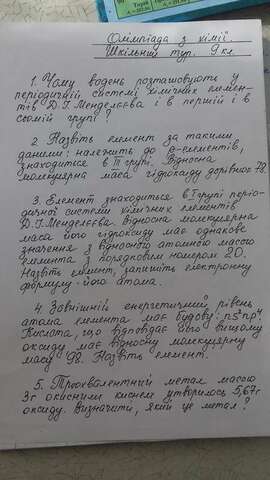 Олімпіада з хімії
Шкільний тур. 9 кл.
1. Чому водень розташовують у
періодичній системі хімічних елемен-
тів Д.І. Менделєєва і в першій і в
сьомій групі?
2. Назвіть елемент за такими
даними: належить до s-елементів,
знаходиться в II групі. Відносна
молекулярна маса гідроксиду дорівнює 78.
3. Елемент знаходиться в I групі періо-
дичної системи хімічних елементів
Д.І. Менделєєва. Відносна молекулярна
маса його гідроксиду має однакове
значення з відносною атомною масою
елемента з порядковим номером 20.
Назвіть елемент, запишіть електронну
формулу його атома.
4. Зовнішній енергетичний рівень
атома елемента має будову: ns²np⁴.
Кислота, що відповідає його вищому
оксиду має відносну молекулярну
масу 98. Назвіть елемент.
5. Трьохвалентний метал массою
3г окисними киснем утворилось 5,67г
оксиду. Визначити, який це метал?